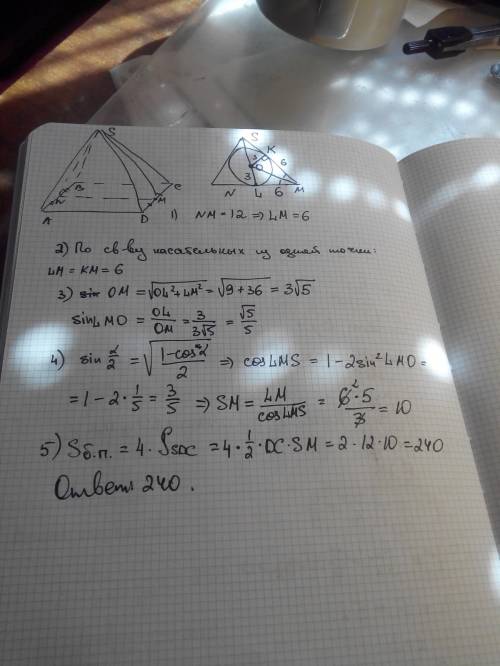 S
S
K
3
6
O
3
N L 6 M
A
N
B
C
M
D
1) NM = 12 ⇒ LM = 6
2) По св-ву касательных из одной точки:
LM = KM = 6
3) sin OM = √(OL² + LM²) = √(9 + 36) = 3√5
sin LMO = OL/OM = 3/(3√5) = √5/5
4) sin α/2 = √((1 - cos α)/2) ⇒ cos LMS = 1 - 2 sin² LMO =
= 1 - 2 · 1/5 = 3/5 ⇒ SM = LM/cos LMS = 6² · 5/3 = 10
5) Sб.п. = 4 · S SDC = 4 · 1/2 · DC · SM = 2 · 12 · 10 = 240
Ответ 240.